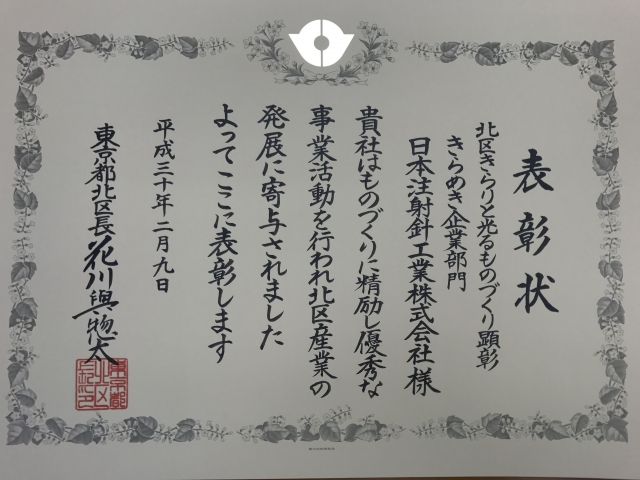 表彰状
北区きらりと光るものづくり顕彰
きらめき企業部門
日本注射針工業株式会社様
貴社はものづくりに精励し優秀な
事業活動を行われ北区産業の
発展に寄与されました
よってここに表彰します
平成三十年二月九日
東京都北区長 花川與惣太